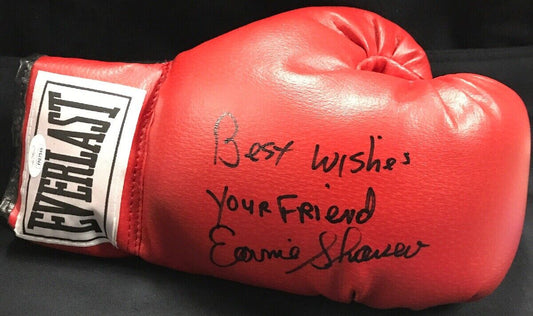 EVERLAST
Best Wishes
Your Friend
Earnie Shavers